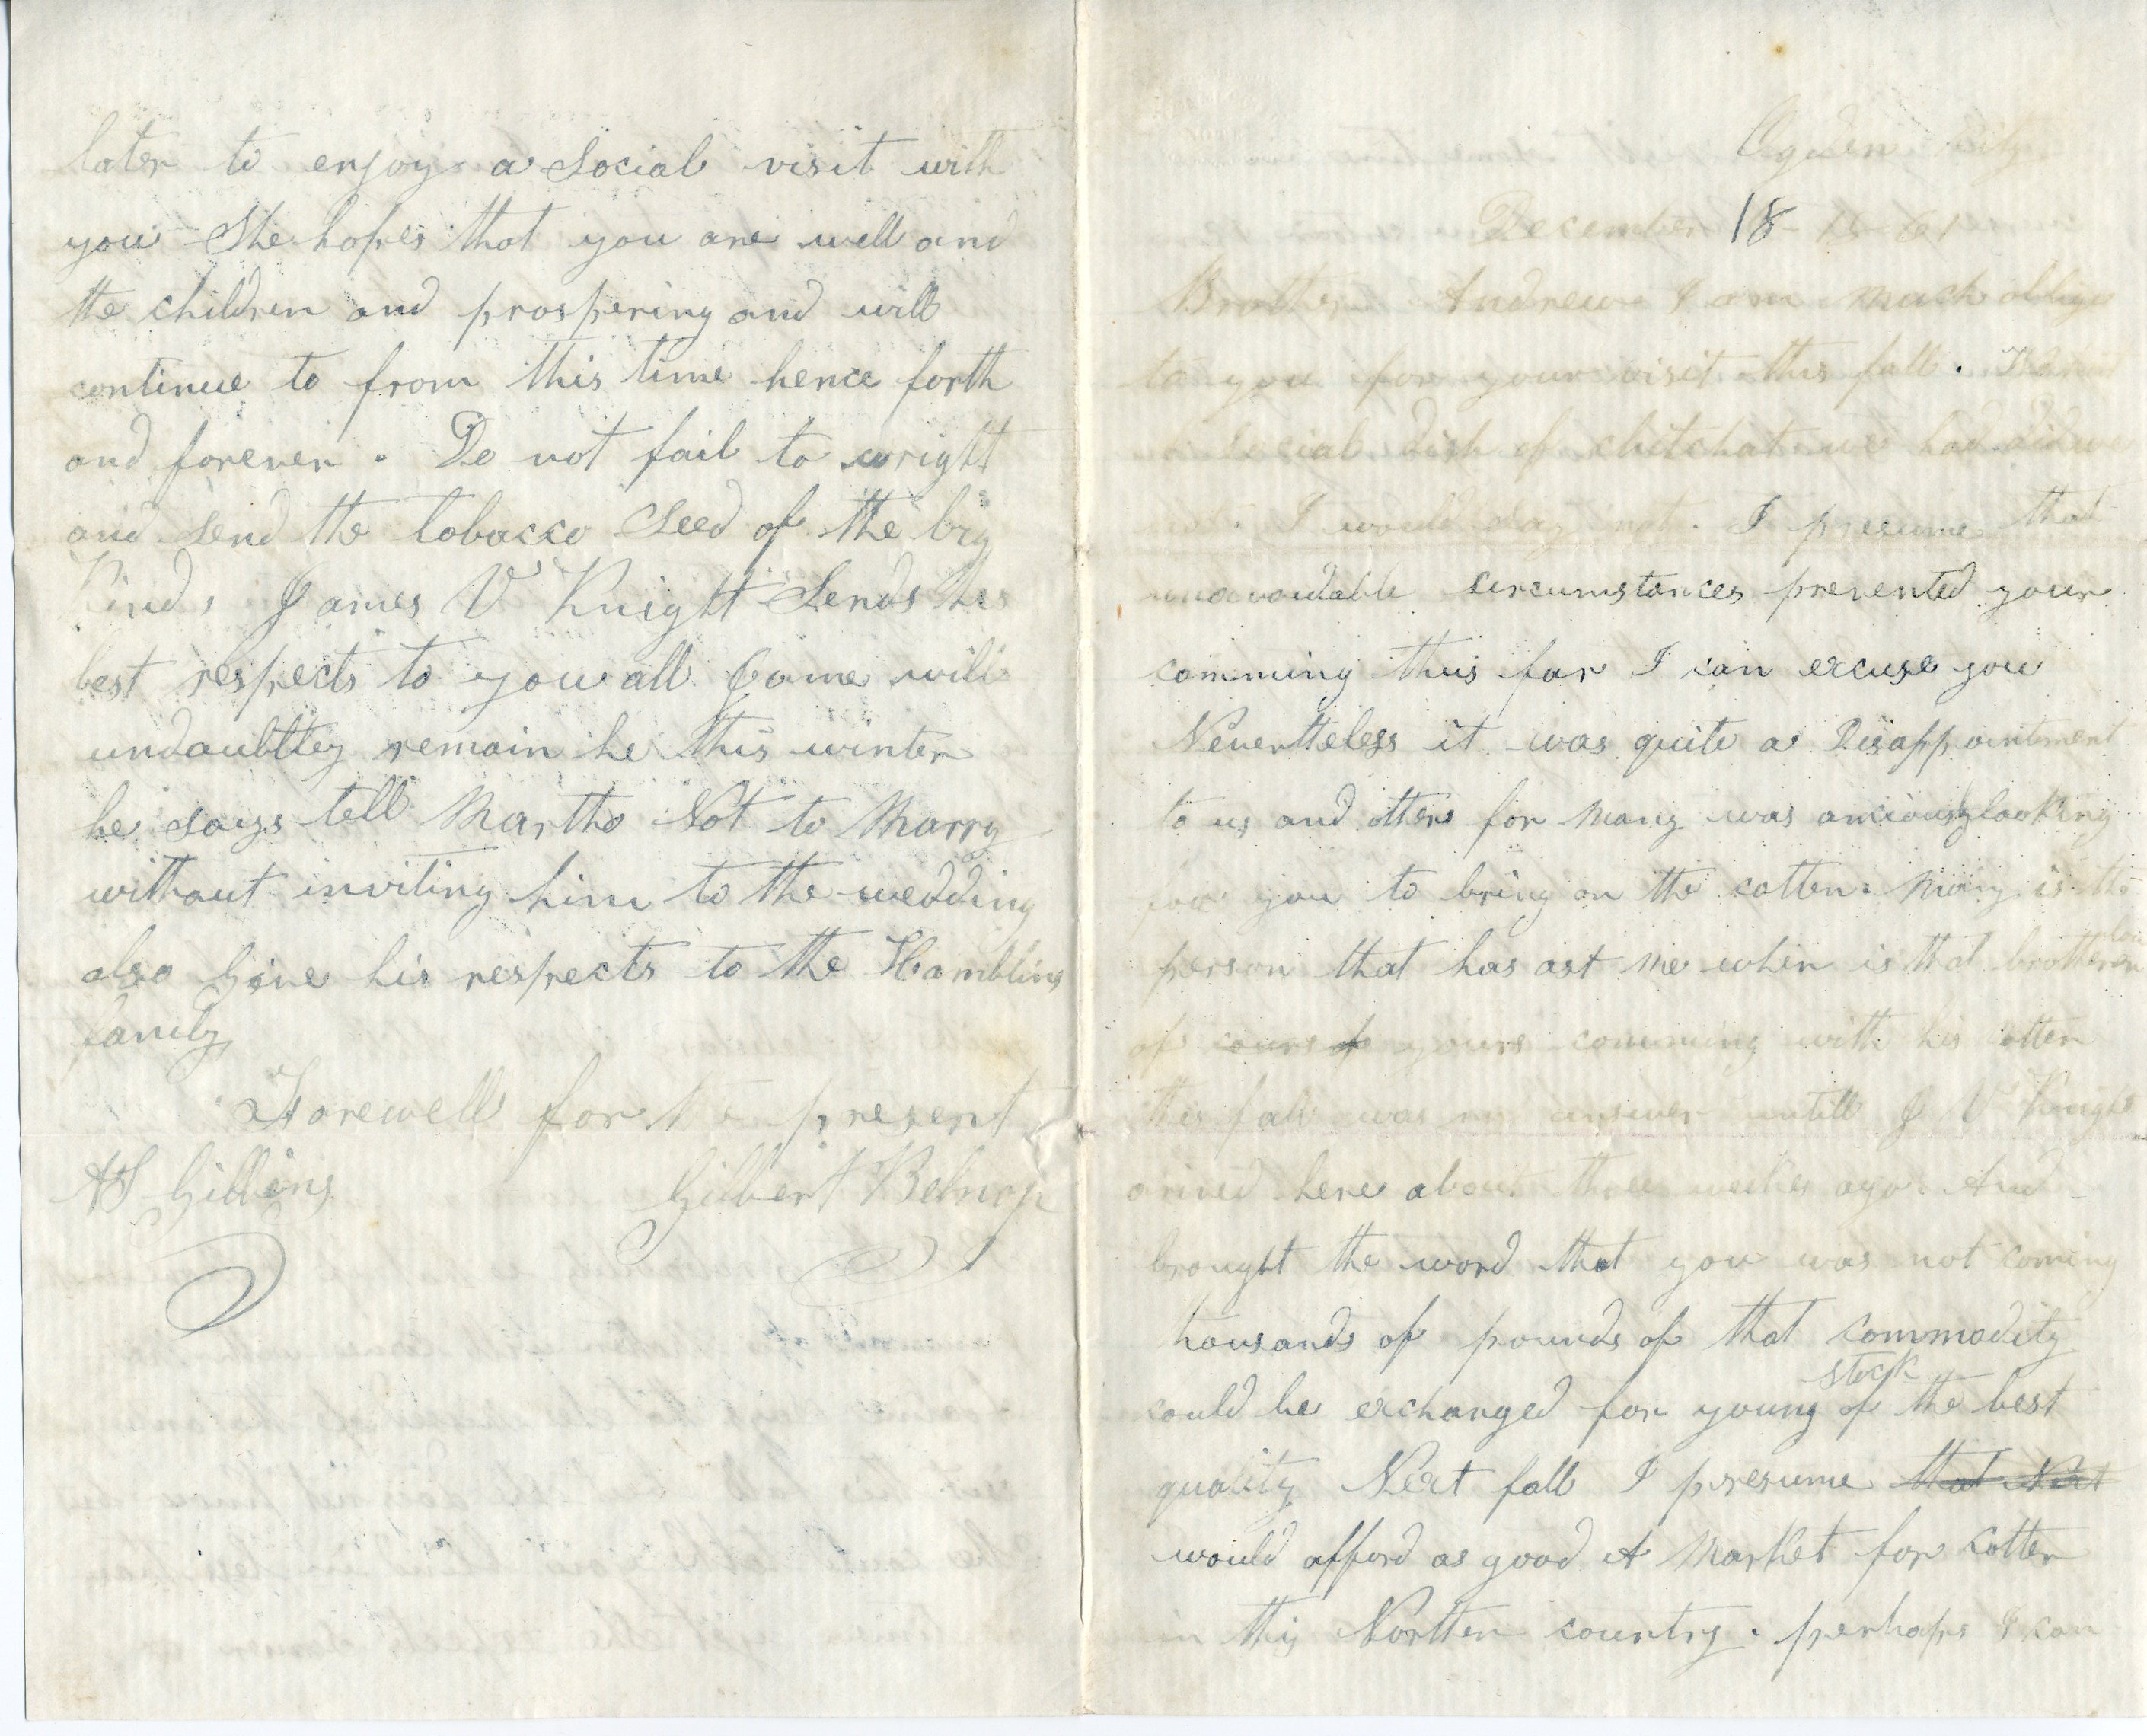 Ogden City
December 18 1861
Brother Andrew I am much oblige
to you for your visit this fall.
social dish of chitchat we had did we
I would say not. I presume that
unavoudable circumstances prevented your
comming thus far I can excuse you
Nevertheless it was quite a Disappointment
to us and others for many was anciously looking
for you to bring on the cotten. Many is the
person that has ast me when is that brother in law
of cours of yours comming with his cotten
this fall was my answer untill J V Knight
arived here about three weeks ago. And
brought the word that you was not coming
thousands of pounds of that commodity
could be exchanged for young stock of the best
quality Next fall I presume that Next
would afford as good A market for cotten
in this Northen country. perhaps I can
later to enjoy a social visit with
you She hopes that you are well and
the children and prospering and will
continue to from this time hence forth
and forever. Do not fail to wright
and send the tobacco seed of the big
kind, James V Knight Sends his
best respects to you all Jame will
undoubttey remain he this winter
he says tell Martha Not to Marry
without inviting him to the wedding
also give his respects to the Hambling
family
Farewell for the present
AS Gibbons Gilbert Belnap